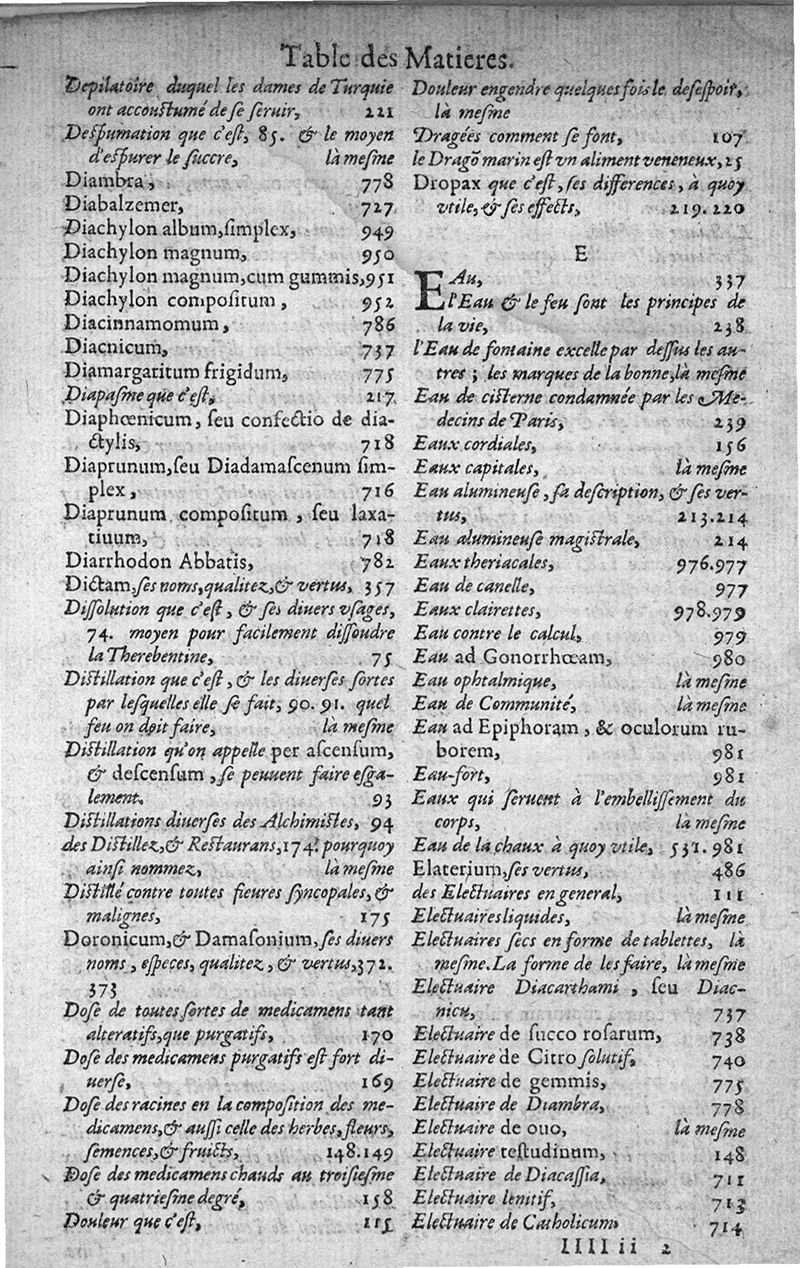 Table des Matieres.
Depilatoire duquel les dames de Turquie
ont accouſtumé de ſe ſeruir, 221
Deſpumation que c'eſt, 85. & le moyen
d'eſpurer le ſuccre, là meſme
Diambra, 778
Diabalzemer, 727
Diachylon album, ſimplex, 949
Diachylon magnum, 950
Diachylon magnum, cum gummis, 951
Diachylon compoſitum, 952
Diacinnamomum, 786
Diacnicum, 737
Diamargaritum frigidum, 775
Diapaſme que c'eſt, 217
Diaphœnicum, ſeu confectio de dia-
ctylis, 718
Diaprunum, ſeu Diadamaſcenum ſim-
plex, 716
Diaprunum compoſitum, ſeu laxa-
tiuum, 718
Diarrhodon Abbatis, 782
Dictam, ſes noms, qualitez, & vertus, 357
Diſſolution que c'eſt, & ſes diuers vſages,
74. moyen pour facilement diſſoudre
la Therebentine, 75
Diſtillation que c'eſt, & les diuerſes ſortes
par leſquelles elle ſe fait, 90. 91. quel
feu on doit faire, la meſme
Diſtillation qu'on appelle per aſcenſum,
& deſcenſum, ſe peuuent faire eſga-
lement. 93
Diſtillations diuerſes des Alchimiſtes, 94
des Diſtillez, & Reſtaurans, 174. pourquoy
ainſi nommez, là meſme
Diſtillé contre toutes fieures ſyncopales, &
malignes, 175
Doronicum, & Damaſonium, ſes diuers
noms, eſpeces, qualitez, & vertus, 372.
373
Doſe de toutes ſortes de medicamens tant
alteratifs, que purgatifs, 170
Doſe des medicamens purgatifs eſt fort di-
uerſe, 169
Doſe des racines en la compoſition des me-
dicamens, & auſſi celle des herbes, fleurs,
ſemences, & fruicts, 148. 149
Doſe des medicamens chauds au troiſieſme
& quatrieſme degré, 158
Douleur que c'eſt, 115
Douleur engendre quelquesfois le deſeſpoir,
là meſme
Dragées comment ſe font, 107
le Dragõ marin eſt vn aliment veneneux, 25
Dropax que c'eſt, ſes differences, à quoy
vtile, & ſes effects, 219. 220
E
EAu, 337
l'Eau & le feu ſont les principes de
la vie, 238
l'Eau de fontaine excelle par deſſus les au-
tres; les marques de la bonne, là meſme
Eau de ciſterne condamnée par les Me-
decins de Paris, 239
Eaux cordiales, 156
Eaux capitales, là meſme
Eau alumineuſe, ſa deſcription, & ſes ver-
tus, 213. 214
Eau alumineuſe magiſtrale, 214
Eaux theriacales, 976. 977
Eau de canelle, 977
Eaux clairettes, 978. 979
Eau contre le calcul, 979
Eau ad Gonorrhœam, 980
Eau ophtalmique, là meſme
Eau de Communité, là meſme
Eau ad Epiphoram, & oculorum ru-
borem, 981
Eau-fort, 981
Eaux qui ſeruent à l'embelliſſement du
corps, là meſme
Eau de la chaux à quoy vtile, 531. 981
Elaterium, ſes vertus, 486
des Electuaires en general, 111
Electuaires liquides, là meſme
Electuaires ſecs en forme de tablettes, là
meſme. La forme de les faire, là meſme
Electuaire Diacarthami, ſeu Diac-
nicu, 737
Electuaire de ſucco roſarum, 738
Electuaire de Citro ſolutif, 740
Electuaire de gemmis, 775
Electuaire de Diambra, 778
Electuaire de ouo, là meſme
Electuaire teſtudinum, 148
Electuaire de Diacaſſia, 711
Electuaire lenitif, 713
Electuaire de Catholicum, 714
IIII ii 2